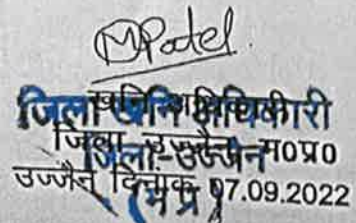 MPatel
खनि अधिकारी
जिला खनि अधिकारी
जिला उज्जैन म०प्र०
जिला-उज्जैन
उज्जैन दिनांक 07.09.2022
(म.प्र.)